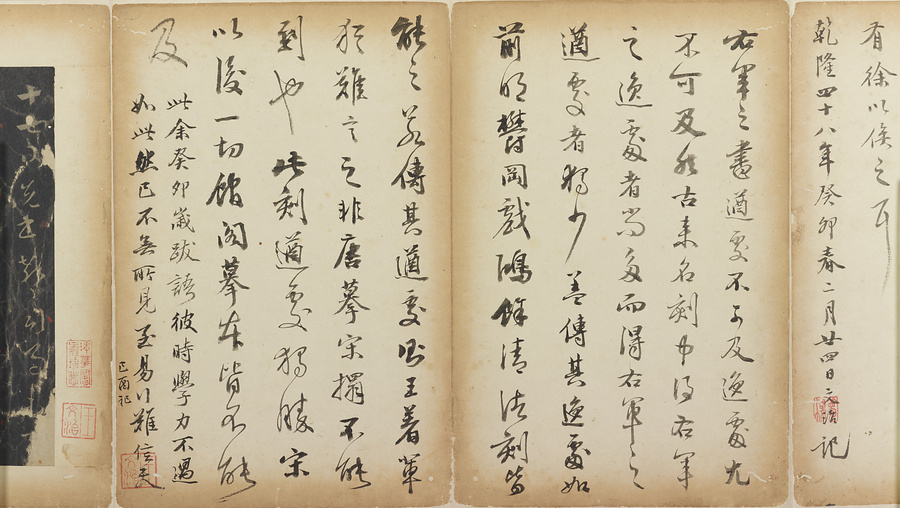 有徐以俟之耳
乾隆四十八年癸卯春二月廿四日文治記
右軍之書遒處不可及逸處尤
不可及然古來名刻中得右軍
之逸處者尚多而得右軍之
遒處者獨少蓋傳其逸處如
前明鬱岡戲鴻餘清諸刻皆
能之若傳其遒處即王著輩
猶難言之非唐摹宋搨不能
到也此刻遒處獨勝宋
以後一切館閣摹本皆不能
及
此余癸卯歲跋語彼時學力不過
如此然已不無所見至易行難信夫
己酉記
王文治
十七日先書